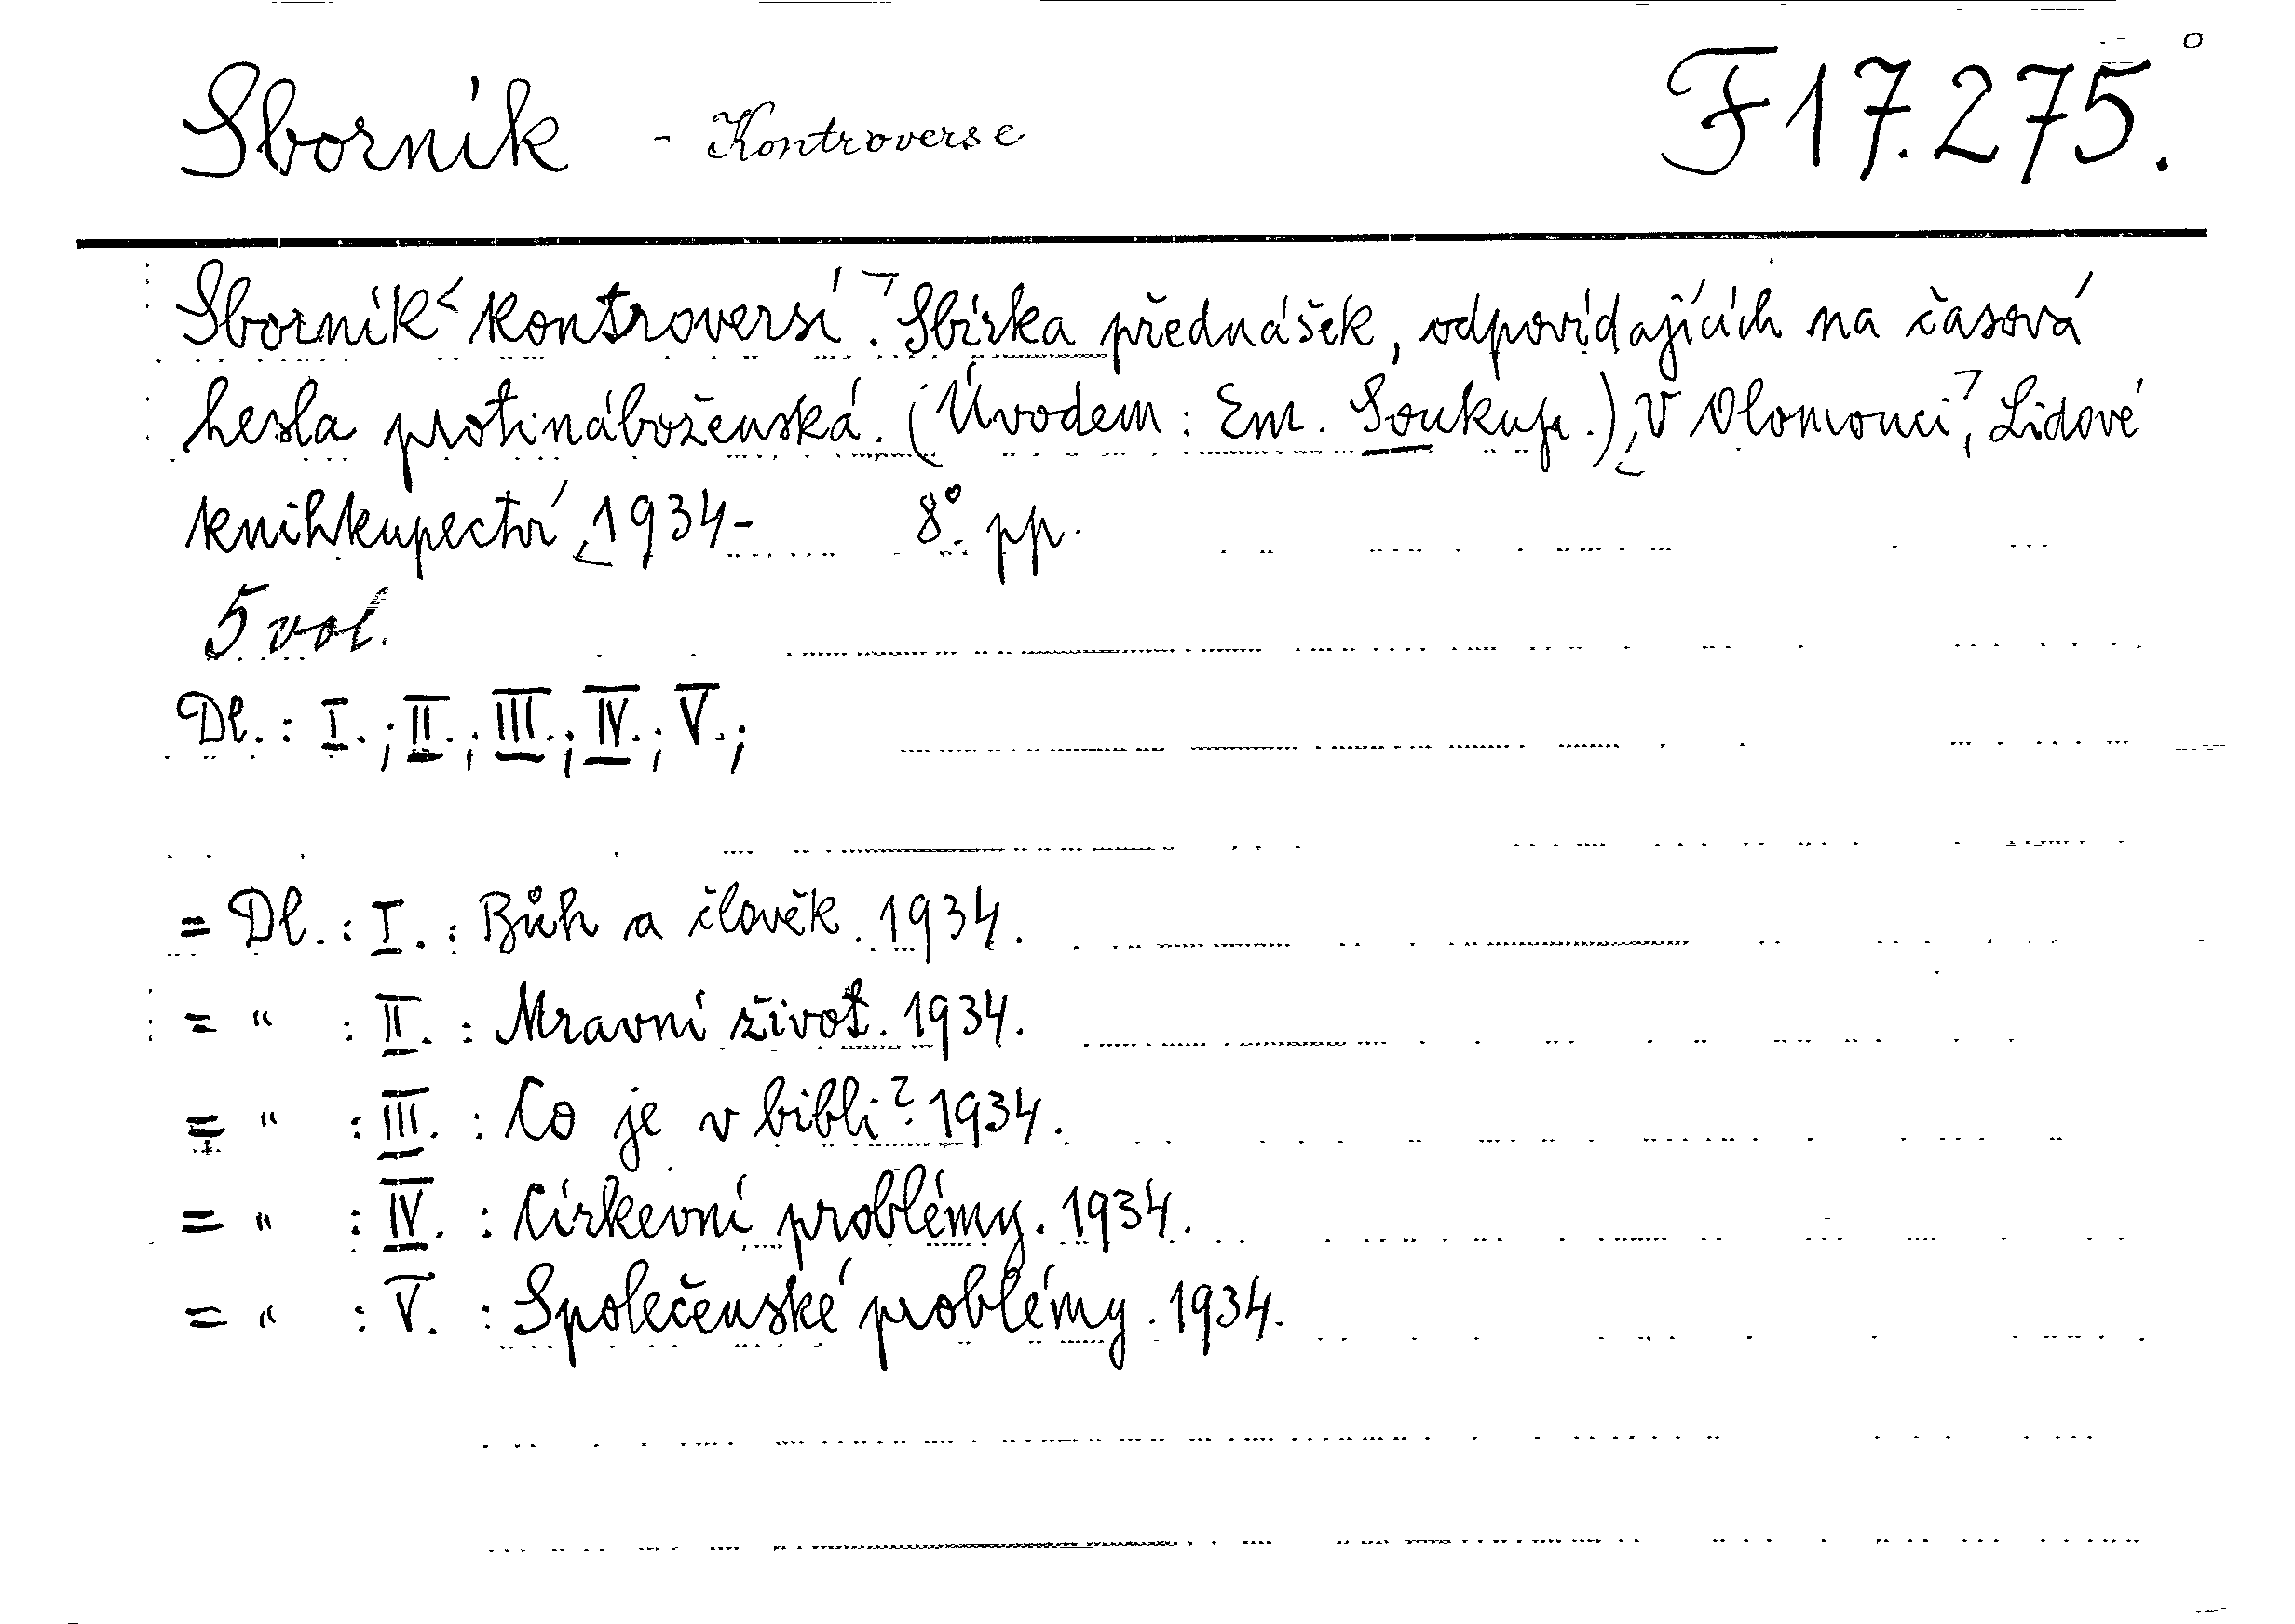 Sborník - Kontroverse F 17.275.
Sborník kontroversí. Sbírka přednášek, odpovídajících na časová
hesla protináboženská. (Úvodem: Em. Soukup.) V Olomouci, Lidové
knihkupectví, 1934- 8°. pp.
5 vol.
Dl.: I.; II.; III.; IV.; V.;
= Dl.: I.: Bůh a člověk. 1934.
= " : II. : Mravní život. 1934.
= " : III. : Co je v bibli? 1934.
= " : IV. : Církevní problémy. 1934.
= " : V. : Společenské problémy. 1934.